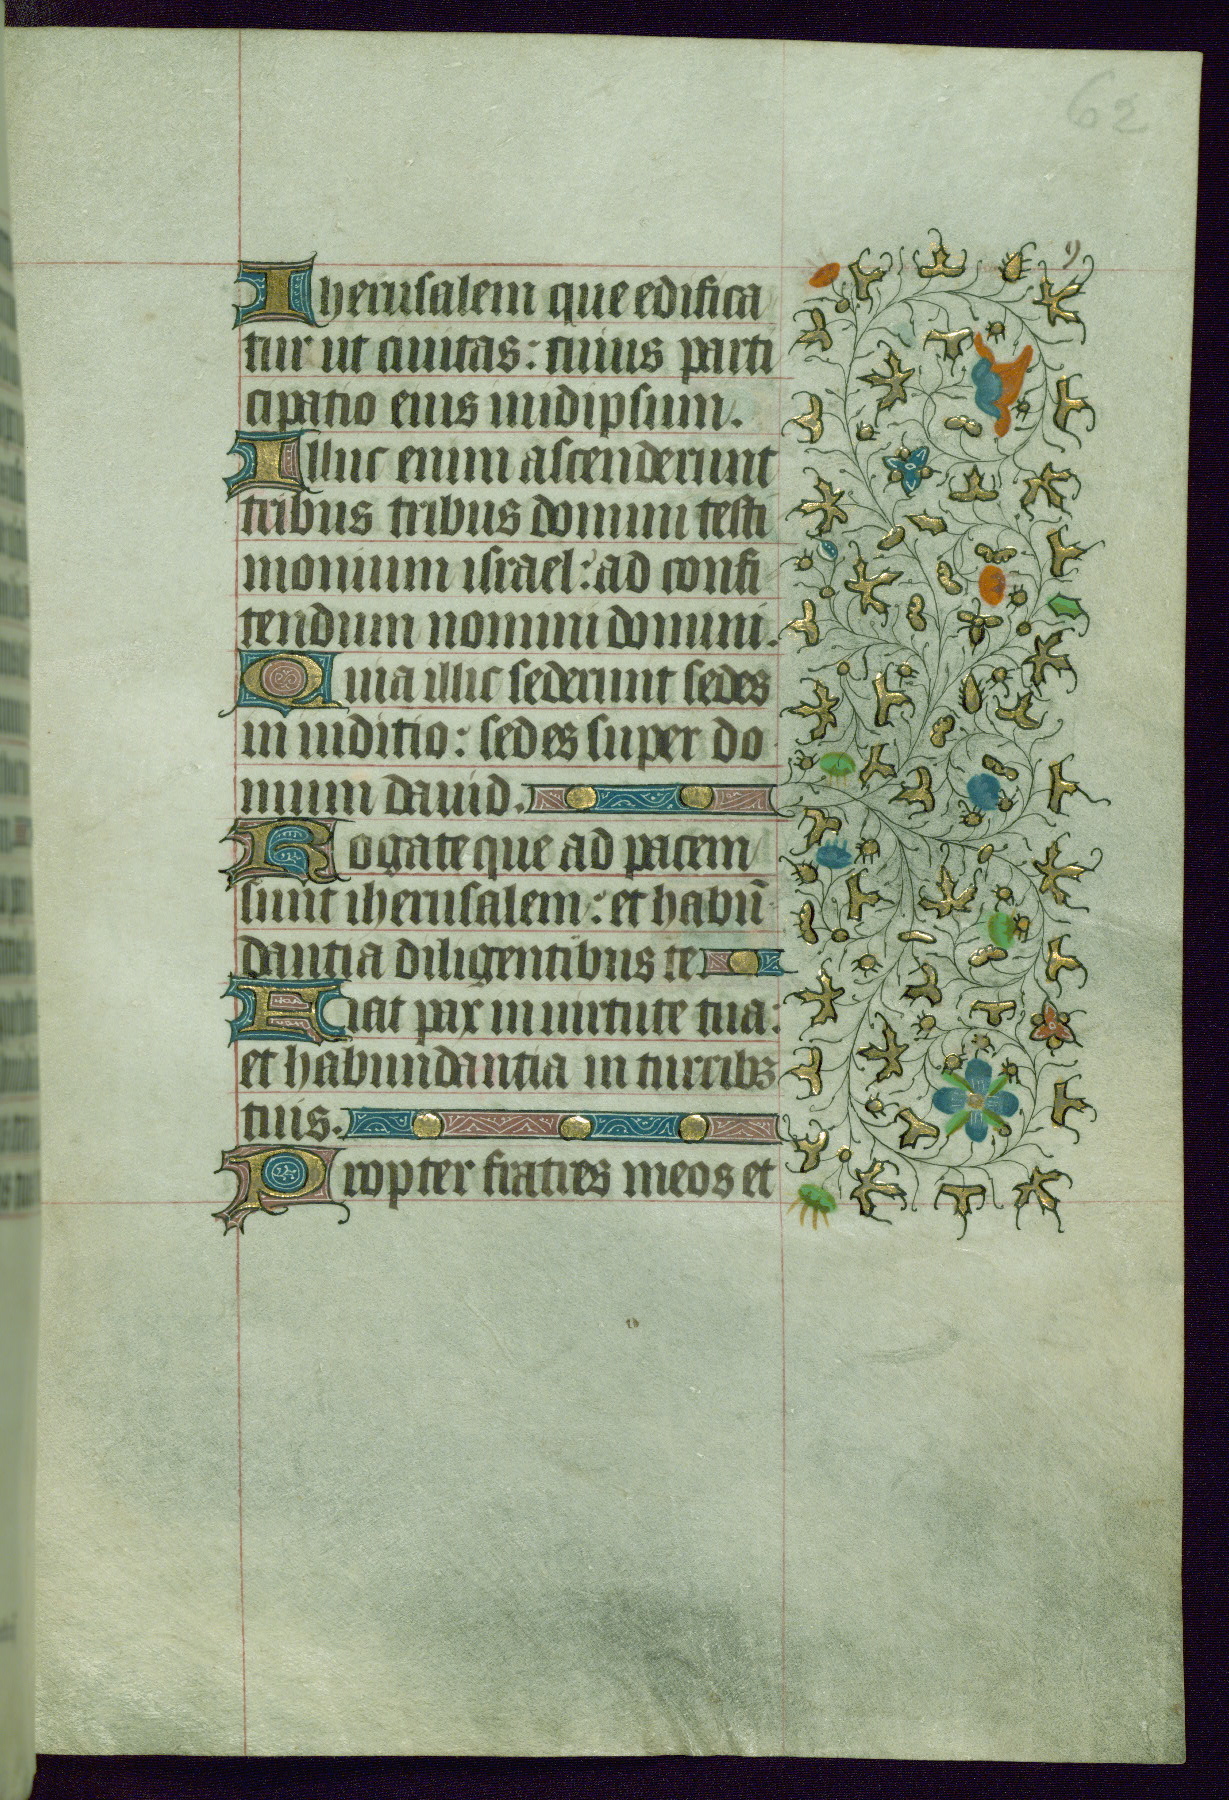 62
Iherusalem que edifica
tur ut ciuitas: cuius parti
cipatio eius inidipsum.
Illuc enim ascenderunt
tribus tribus domini testi
monium israel: ad confi
tendum nomini domini.
Quia illic sederunt sedes
in iuditio: sedes super do
mum dauid.
Rogate que ad pacem
sunt iherusalem: et habū
dantia diligentibus te
Fiat pax in uirtute tua:
et habundantia in turribꝫ
tuis.
Propter fratres meos et